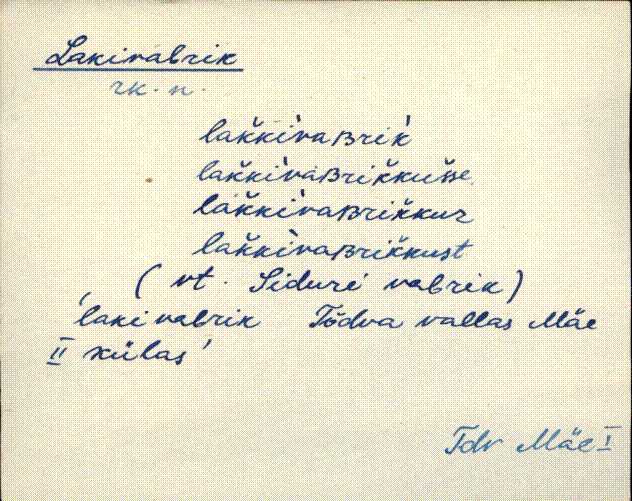 Lakivabrik
rk. n.
lak̆k̆ìvaʙrik̀
lak̆k̆ìvaʙrik̆kuse
lak̆k̆ìvaʙrik̆kuz
lak̆k̆ìvaʙrik̆kust
( vt. Siduri vabrik)
'laki vabrik Tõdva vallas Mäe
II külas'
Tdv Mäe I